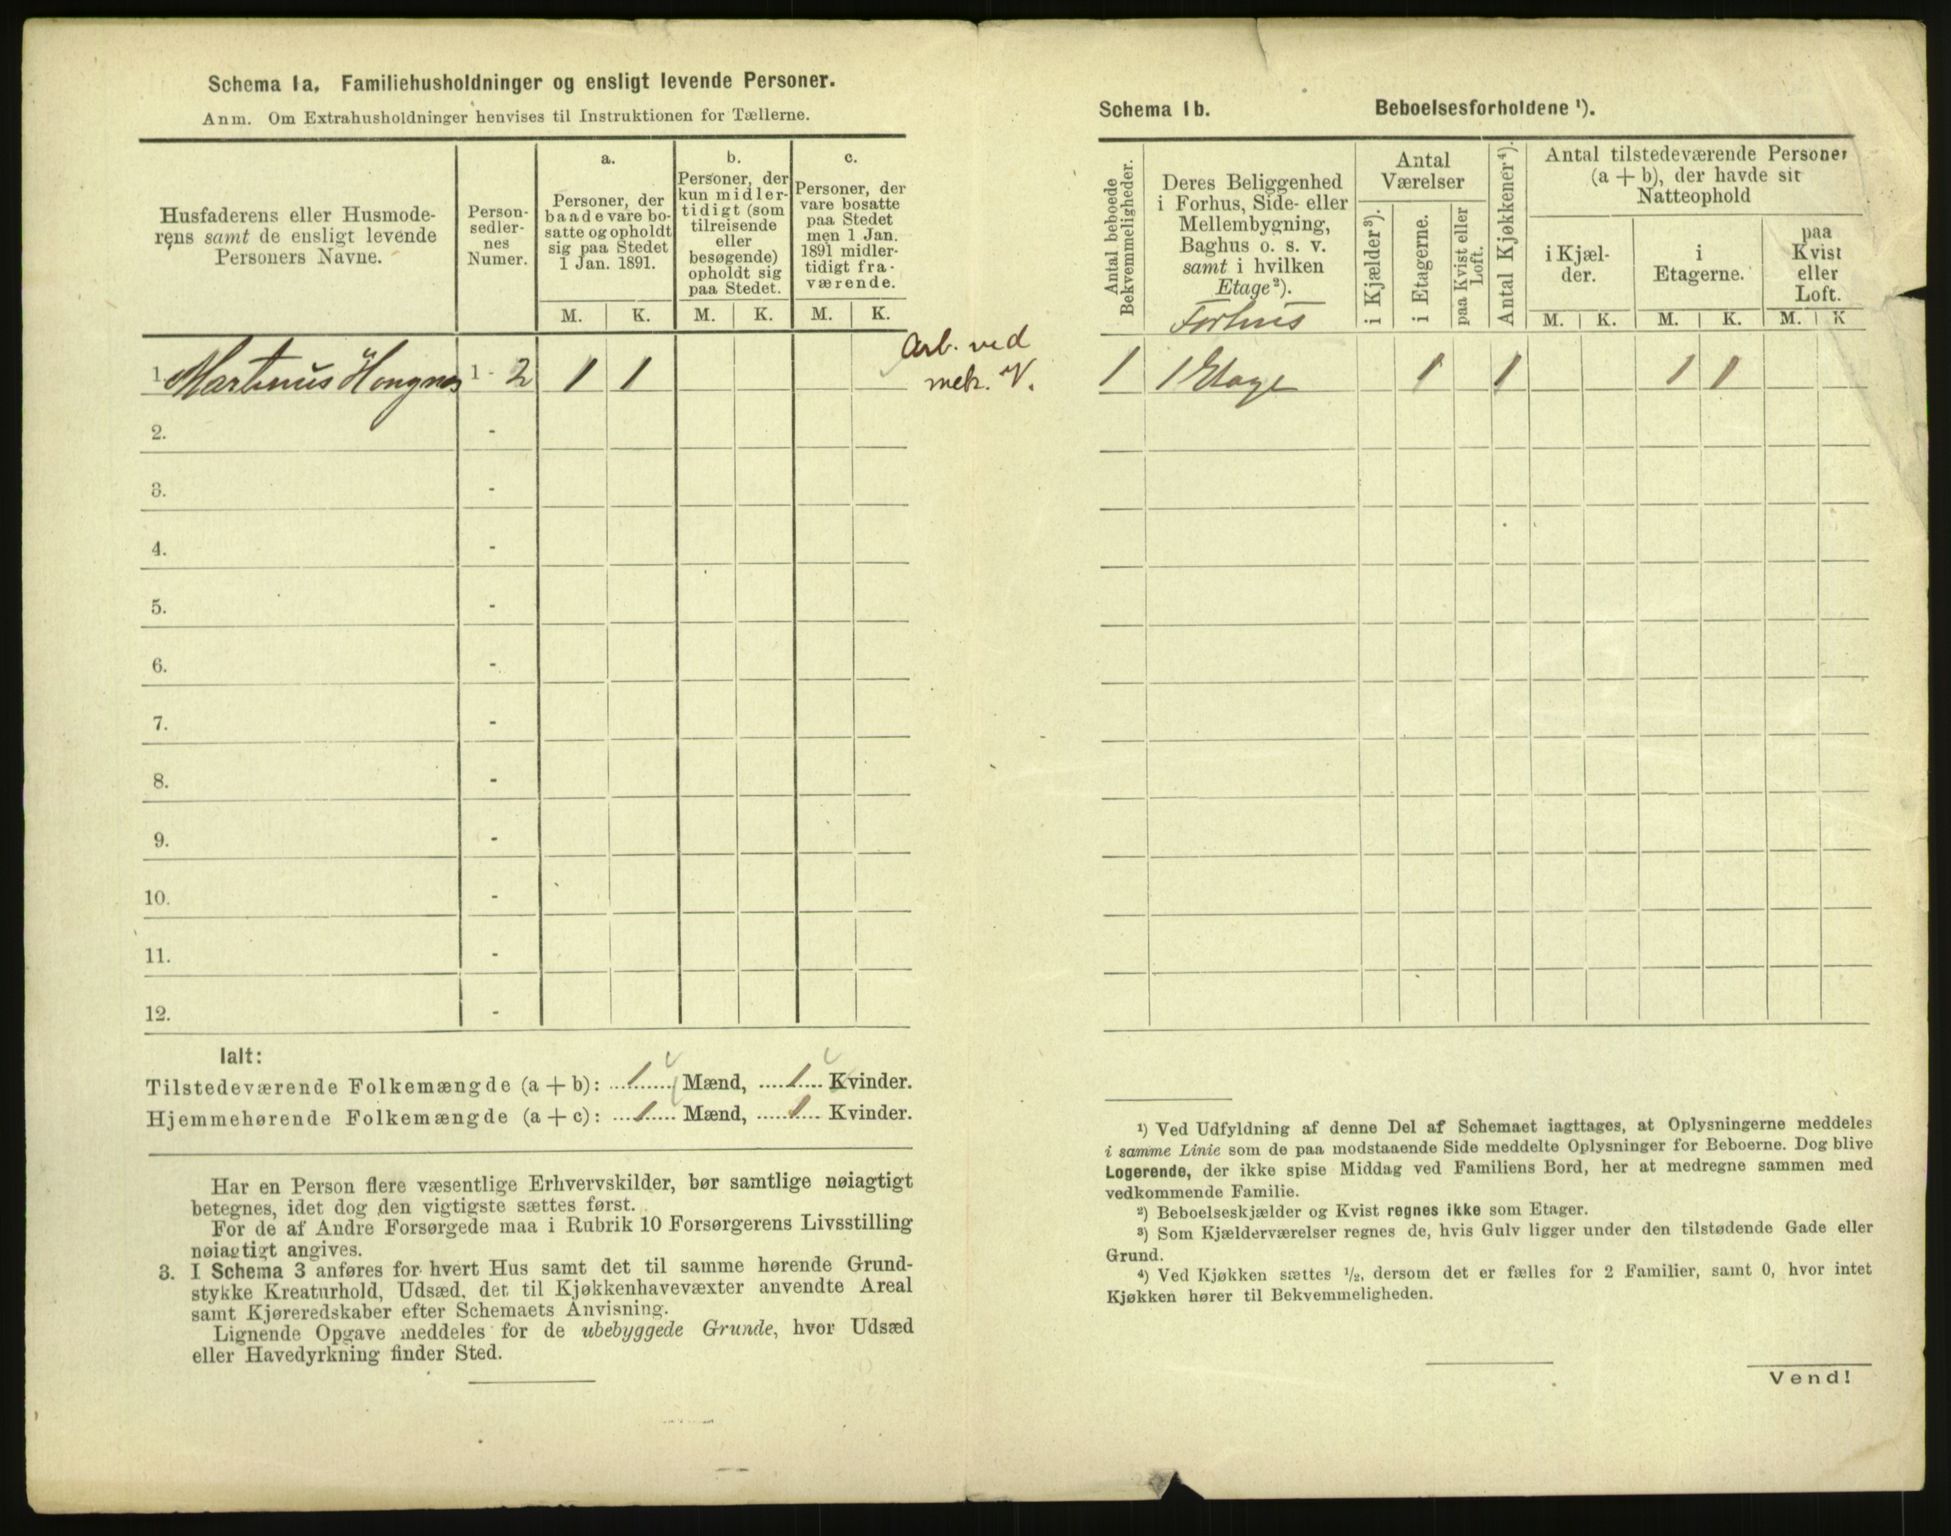 Schema 1a. Familiehusholdninger og ensligt levende Personer.
Anm. Om Extrahusholdninger henvises til Instruktionen for Tællerne.
Husfaderens eller Husmode-
rens samt de ensligt levende
Personers Navne.
Person-
sedler-
nes
Numer.
a.
Personer, der
baade vare bo-
satte og opholdt
sig paa Stedet
1 Jan. 1891.
b.
Personer, der
kun midler-
tidigt (som
tilreisende
eller
besøgende)
opholdt sig
paa Stedet.
c.
Personer, der
vare bosatte
paa Stedet
men 1 Jan.
1891 midler-
tidigt fra-
værende.
M. K. M. K. M. K.
1. Martinus 1 - 2 1 1
Arb. ved
mek. V.
2. -
3. -
4. -
5. -
6. -
7. -
8. -
9. -
10. -
11. -
12. -
Ialt:
Tilstedeværende Folkemængde (a + b): 1 Mænd, 1 Kvinder.
Hjemmehørende Folkemængde (a + c): 1 Mænd, 1 Kvinder.
Har en Person flere væsentlige Erhvervskilder, bør samtlige nøiagtigt
betegnes, idet dog den vigtigste sættes først.
For de af Andre Forsørgede maa i Rubrik 10 Forsørgerens Livsstilling
nøiagtigt angives.
3. I Schema 3 anføres for hvert Hus samt det til samme hørende Grund-
stykke Kreaturhold, Udsæd, det til Kjøkkenhavevæxter anvendte Areal
samt Kjøreredskaber efter Schemaets Anvisning.
Lignende Opgave meddeles for de ubebyggede Grunde, hvor Udsæd
eller Havedyrkning finder Sted.
Schema 1b. Beboelsesforholdene ¹).
Antal beboede
Bekvemmeligheder.
Deres Beliggenhed
i Forhus, Side- eller
Mellembygning,
Baghus o. s. v.
samt i hvilken
Etage²).
Forhus
Antal
Værelser
i Kjælder³).
i Etagerne.
paa Kvist eller
Loft.
Antal Kjøkkener⁴).
Antal tilstedeværende Personer
(a + b), der havde sit
Natteophold
i Kjæl-
der.
i
Etagerne.
paa
Kvist
eller
Loft.
M. K. M. K. M. K
1 1 Etage 1 1 1 1
¹) Ved Udfyldning af denne Del af Schemaet iagttages, at Oplysningerne meddeles
i samme Linie som de paa modstaaende Side meddelte Oplysninger for Beboerne. Dog blive
Logerende, der ikke spise Middag ved Familiens Bord, her at medregne sammen med
vedkommende Familie.
²) Beboelseskjælder og Kvist regnes ikke som Etager.
³) Som Kjælderværelser regnes de, hvis Gulv ligger under den tilstødende Gade eller
Grund.
⁴) Ved Kjøkken sættes ½, dersom det er fælles for 2 Familier, samt 0, hvor intet
Kjøkken hører til Bekvemmeligheden.
Vend!